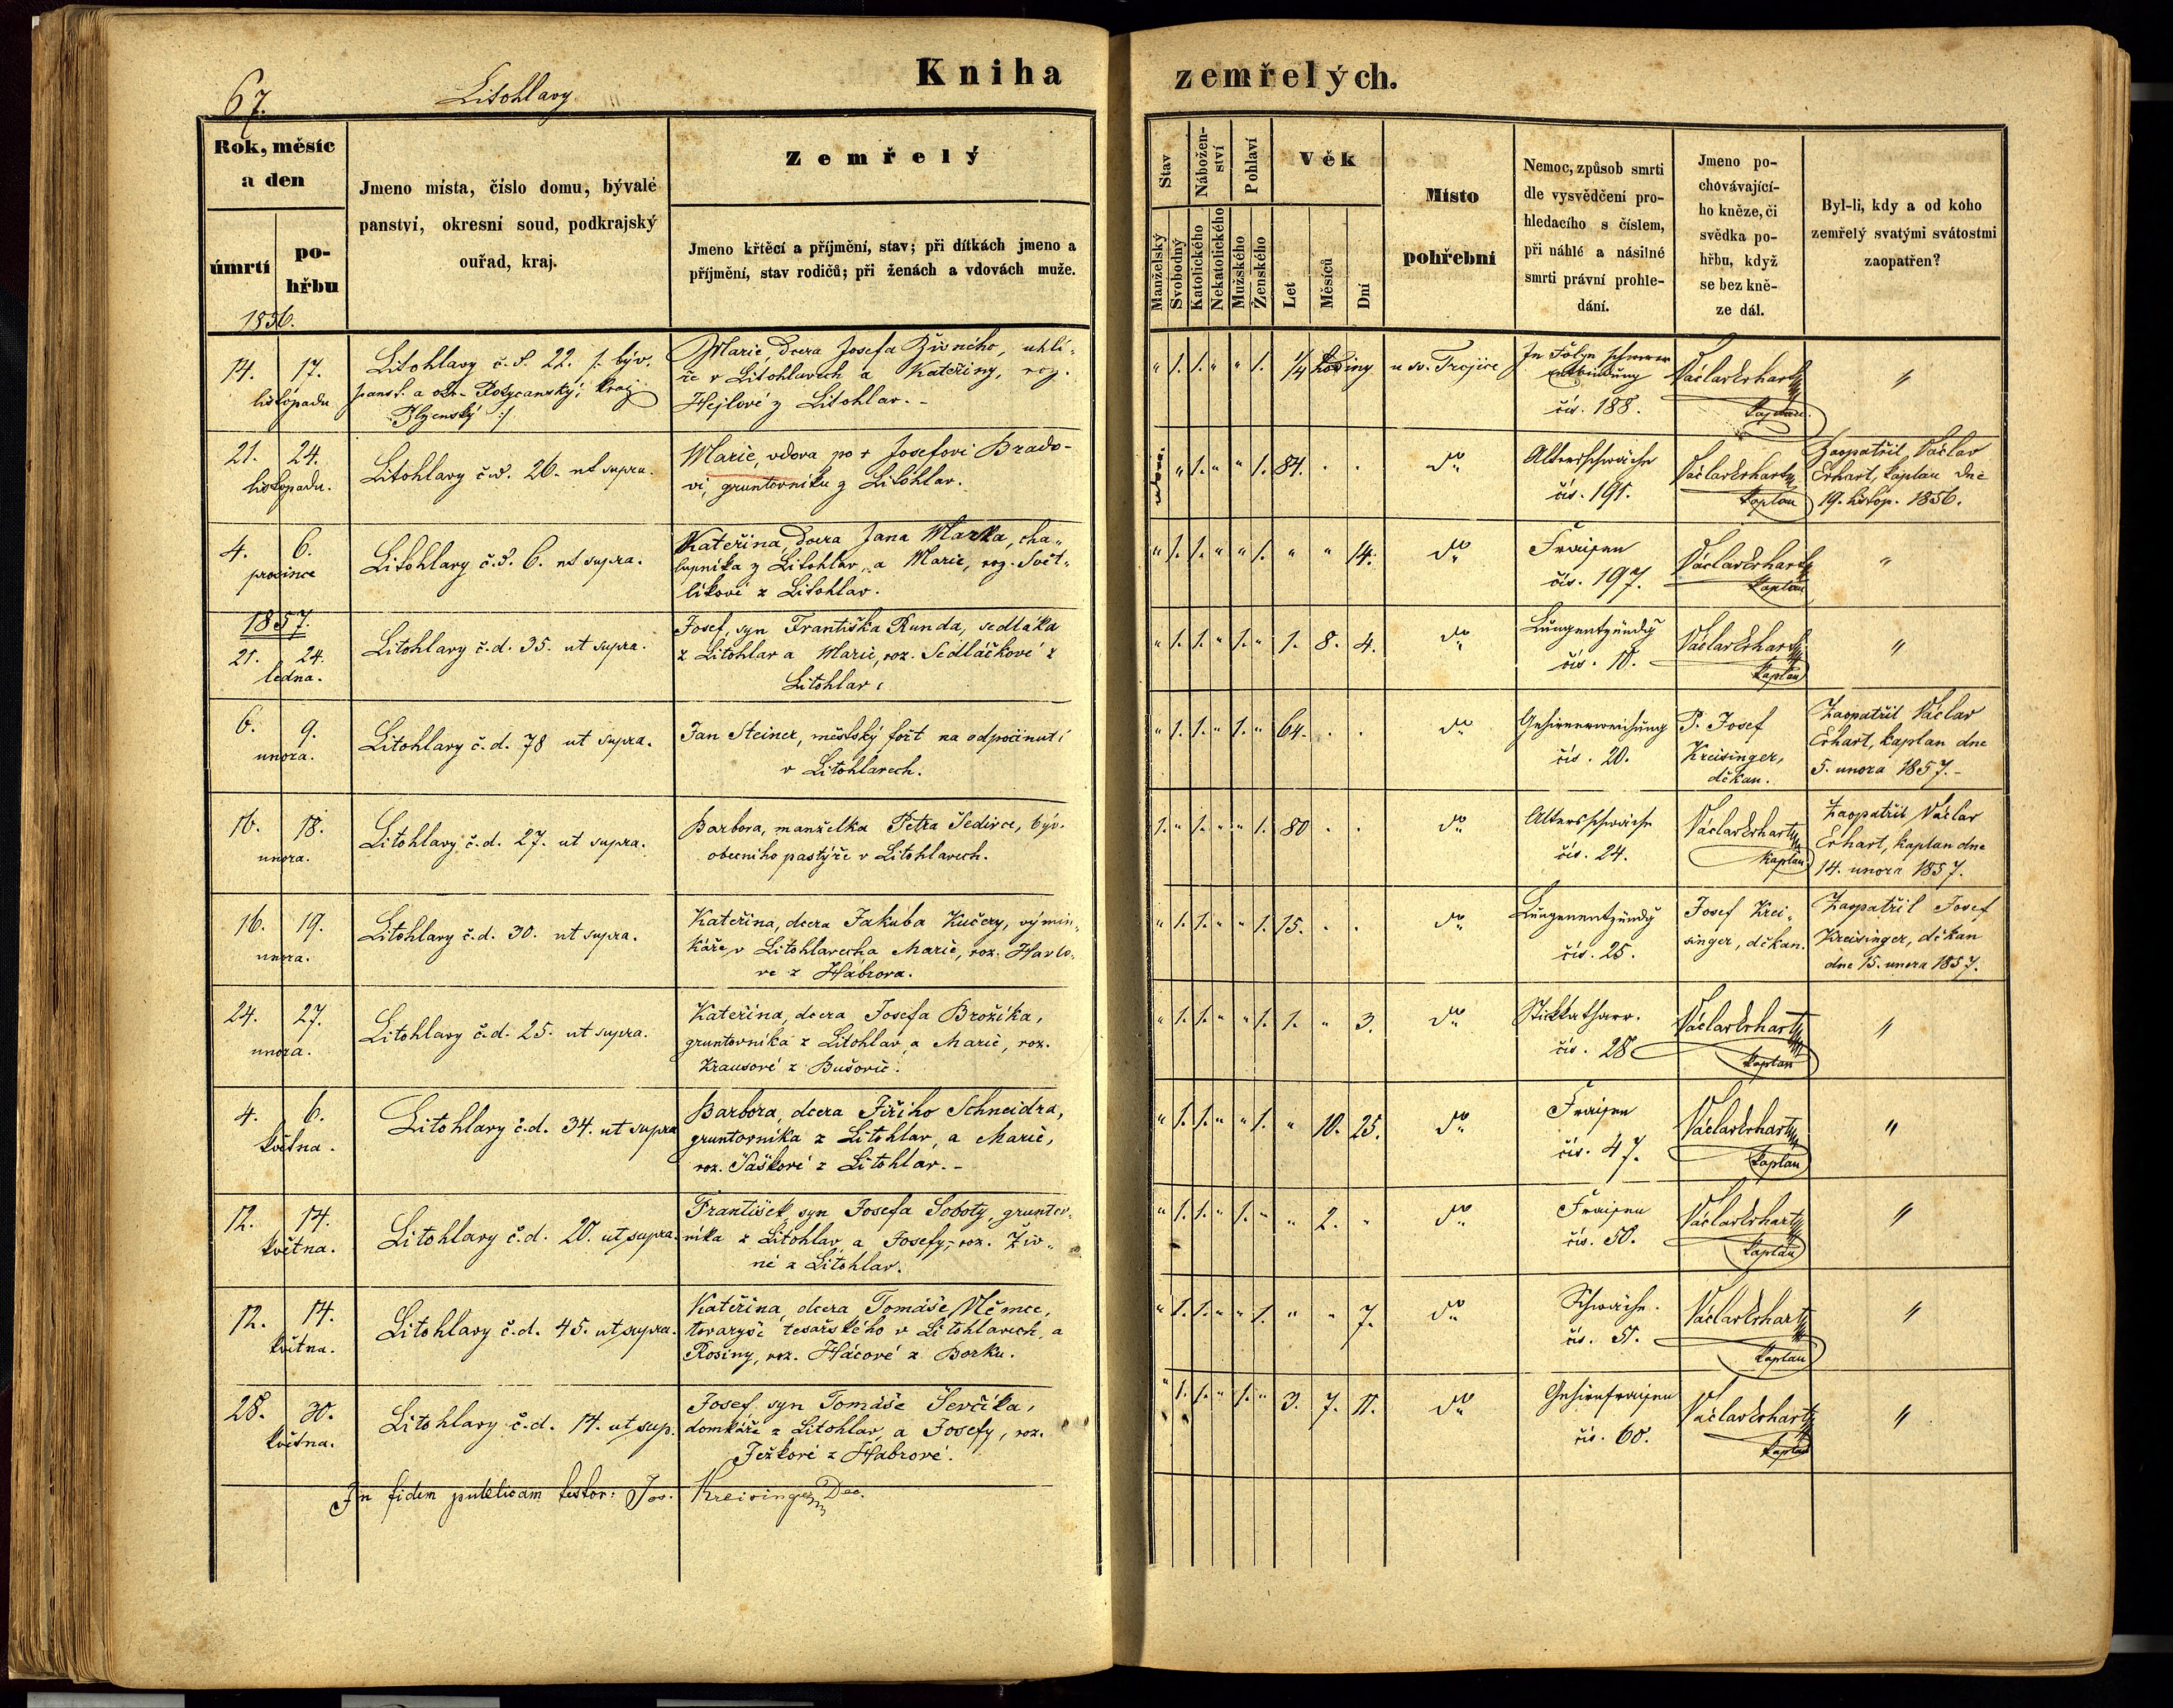 67.
Litohlavy
Kniha
zemřelých.
Rok, měsíc
a den
úmrtí
po-
hřbu
Jmeno místa, číslo domu, bývalé
panství, okresní soud, podkrajský
ouřad, kraj.
Zemřelý
Jmeno křtěcí a příjmění, stav; při dítkách jmeno a
příjmění, stav rodičů; při ženách a vdovách muže.
Stav
Nábožen-
ství
Pohlaví
Věk
Manželský
Svobodný
Katolického
Nekatolického
Mužského
Ženského
Let
Měsíců
Dní
Místo
pohřební
Nemoc, způsob smrti
dle vysvědčení pro-
hledacího s číslem,
při náhlé a násilné
smrti právní prohle-
dání.
Jmeno po-
chovávající-
ho kněze, či
svědka po-
hřbu, když
se bez kně-
ze dál.
Byl-li, kdy a od koho
zemřelý svatými svátostmi
zaopatřen?
1856.
14. 17.
listopadu
Litohlavy č.d. 22. /: býv.
panst. a okr. Rokycanský, kraj
Plzenský :/
Marie, dcera Josefa Živného, uhlí-
ře v Litohlavech a Kateřiny, roz.
Hejlové z Litohlav. -
" 1. 1. " " 1. 1/4 hodiny
u sv. Trojice
In Folge schwerer
Entbindung
čís. 188.
Václav Erhart
kaplan.
"
21. 24.
listopadu.
Litohlavy č.d. 26. ut supra.
Marie, vdova po + Josefovi Brado-
vi, gruntovníku z Litohlav.
vdova. " 1. " " 1. 84. . .
dto
Altersschwäche
čís. 191.
Václav Erhart
kaplan
Zaopatřil Václav
Erhart, kaplan dne
19. listop. 1856.
4. 6.
prosince
Litohlavy č.d. 6. ut supra.
Kateřina, dcera Jana Marka, cha-
lupníka z Litohlav, a Marie, roz. Svět-
líkové z Litohlav.
" 1. 1. " " 1. " " 14.
dto
Fraisen
čís. 197.
Václav Erhart
kaplan
"
1857.
21. 24.
ledna.
Litohlavy č.d. 35. ut supra.
Josef, syn Františka Runda, sedláka
z Litohlav a Marie, roz. Sedláčkové z
Litohlav.
" 1. 1. " 1. " 1. 8. 4.
dto
Lungentzündg
čís. 10.
Václav Erhart
kaplan
"
6. 9.
unora.
Litohlavy č.d. 78 ut supra.
Jan Steiner, městský fořt na odpočinutí
v Litohlavech.
" 1. 1. " 1. " 64. . .
dto
Gehirnerweichung
čís. 20.
P. Josef
Kreisinger,
děkan.
Zaopatřil Václav
Erhart, kaplan dne
5. unora 1857. -
16. 18.
unora.
Litohlavy č.d. 27. ut supra.
Barbora, manželka Petra Šedivce, býv.
obecního pastýře v Litohlavech.
1. " 1. " " 1. 80 . .
dto
Altersschwäche
čís. 24.
Václav Erhart
kaplan
Zaopatřil Václav
Erhart, kaplan dne
14. unora 1857.
16. 19.
unora.
Litohlavy č.d. 30. ut supra.
Kateřina, dcera Jakuba Kučery, výmin-
káře, v Litohlavech a Marie, roz. Havlo-
vé z Habrova.
" 1. 1. " " 1. 15. . .
dto
Lungenentzündg
čís. 25.
Josef Krei-
singer, děkan.
Zaopatřil Josef
Kreisinger, děkan
dne 15. unora 1857.
24. 27.
unora.
Litohlavy č.d. 25. ut supra.
Kateřina, dcera Josefa Brožíka,
gruntovníka z Litohlav, a Marie, roz.
Krausové z Bušovic.
" 1. 1. " " 1. 1. " 3.
dto
Stickkatharr.
čís. 28
Václav Erhart
kaplan
"
4. 6.
května.
Litohlavy č.d. 34. ut supra
Barbora, dcera Jiřího Schneidra,
gruntovníka z Litohlav, a Marie,
roz. Šaškové z Litohlav. -
" 1. 1. " " 1. " 10. 25.
dto
Fraisen
čís. 47.
Václav Erhart
kaplan
"
12. 14.
května.
Litohlavy č.d. 20. ut supra.
František, syn Josefa Soboty, gruntov-
níka z Litohlav, a Josefy, roz. Živ-
né z Litohlav.
" 1. 1. " 1. " " 2. "
dto
Fraisen
čís. 50.
Václav Erhart
kaplan
"
12. 14.
května.
Litohlavy č.d. 45. ut supra.
Kateřina, dcera Tomáše Němce,
tovaryše tesařského v Litohlavech, a
Rosiny, roz. Hácové z Borku.
" 1. 1. " " 1. " " 7.
dto
Schwäche.
čís. 51.
Václav Erhart
kaplan
"
28. 30.
května.
Litohlavy č.d. 14. ut sup.
Josef, syn Tomáše Ševčíka,
domkáře z Litohlav, a Josefy, roz.
Ježkové z Habrové.
" 1. 1. " 1. " 3. 7. 11.
dto
Gehirnfraisen
čís. 60.
Václav Erhart
kaplan
"
In fidem publicam testor: Jos. Kreisinger Dec.